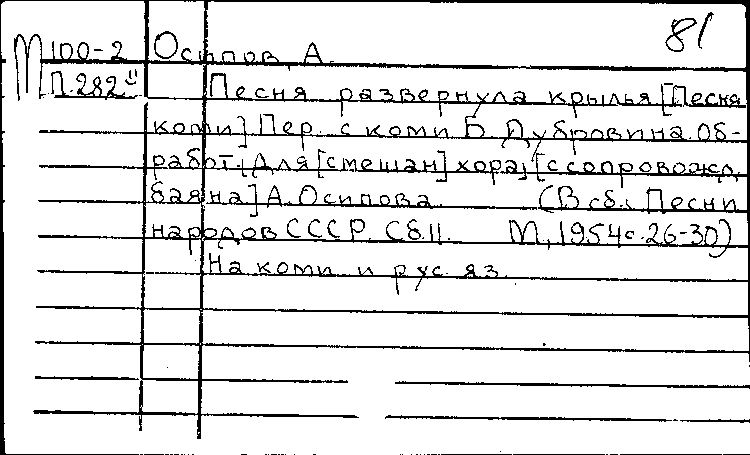 81
М 100-2 Осипов, А.
П.282 11 Песня развернула крылья [Песня
коми]. Пер. с коми Б. Дубровина. Об-
работ. для [смешан] хора, [с сопровожд.
баяна] А. Осипова. (В сб.: Песни
народов СССР. Сб.11. М., 1954 с.26-30)
На коми и рус. яз.